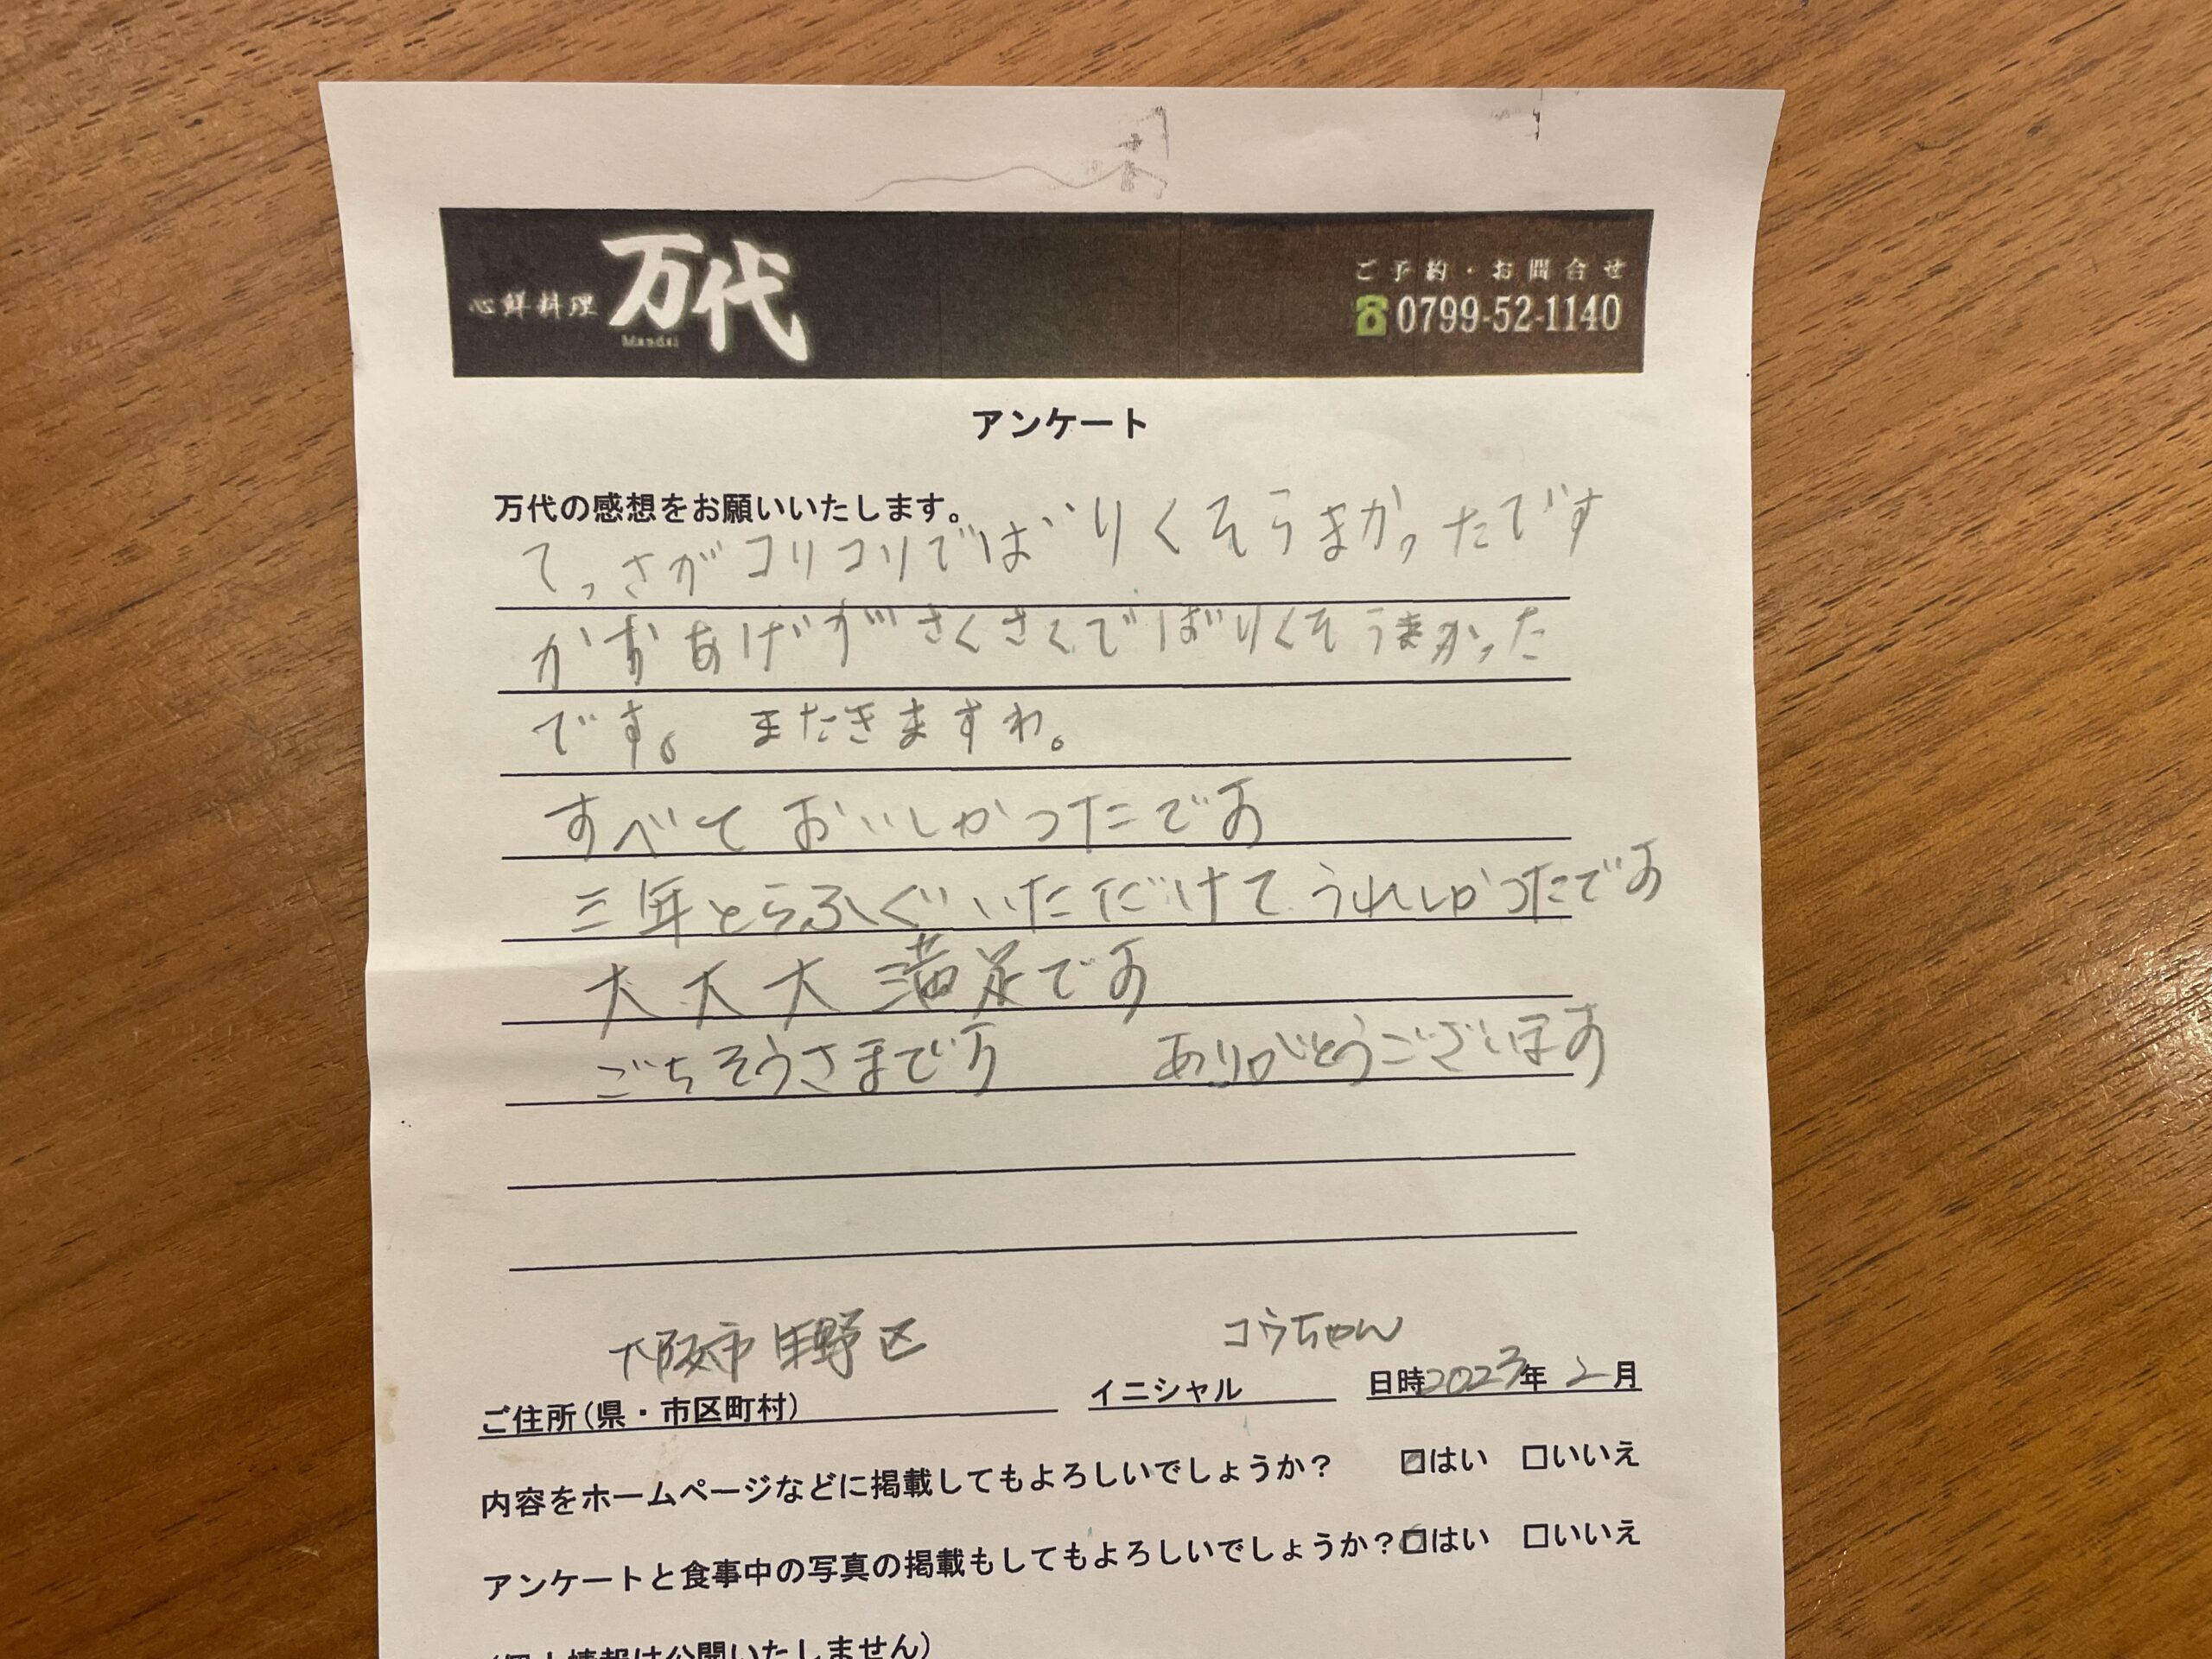 心鮮料理 万代
Mandai
ご予約・お問合せ
0799-52-1140
アンケート
万代の感想をお願いいたします。
てっさがコリコリでばりくそうまかったです
かずあげがさくさくでばりくそうまかった
です。またきますわ。
すべておいしかったです
三年とらふぐいただけてうれしかったです
大大大満足です
ごちそうさまです ありがとうございます
大阪市生野区 コウちゃん
ご住所(県・市区町村) イニシャル 日時2023年2月
内容をホームページなどに掲載してもよろしいでしょうか? はい いいえ
アンケートと食事中の写真の掲載もしてもよろしいでしょうか? はい いいえ
(個人情報は公開いたしません)